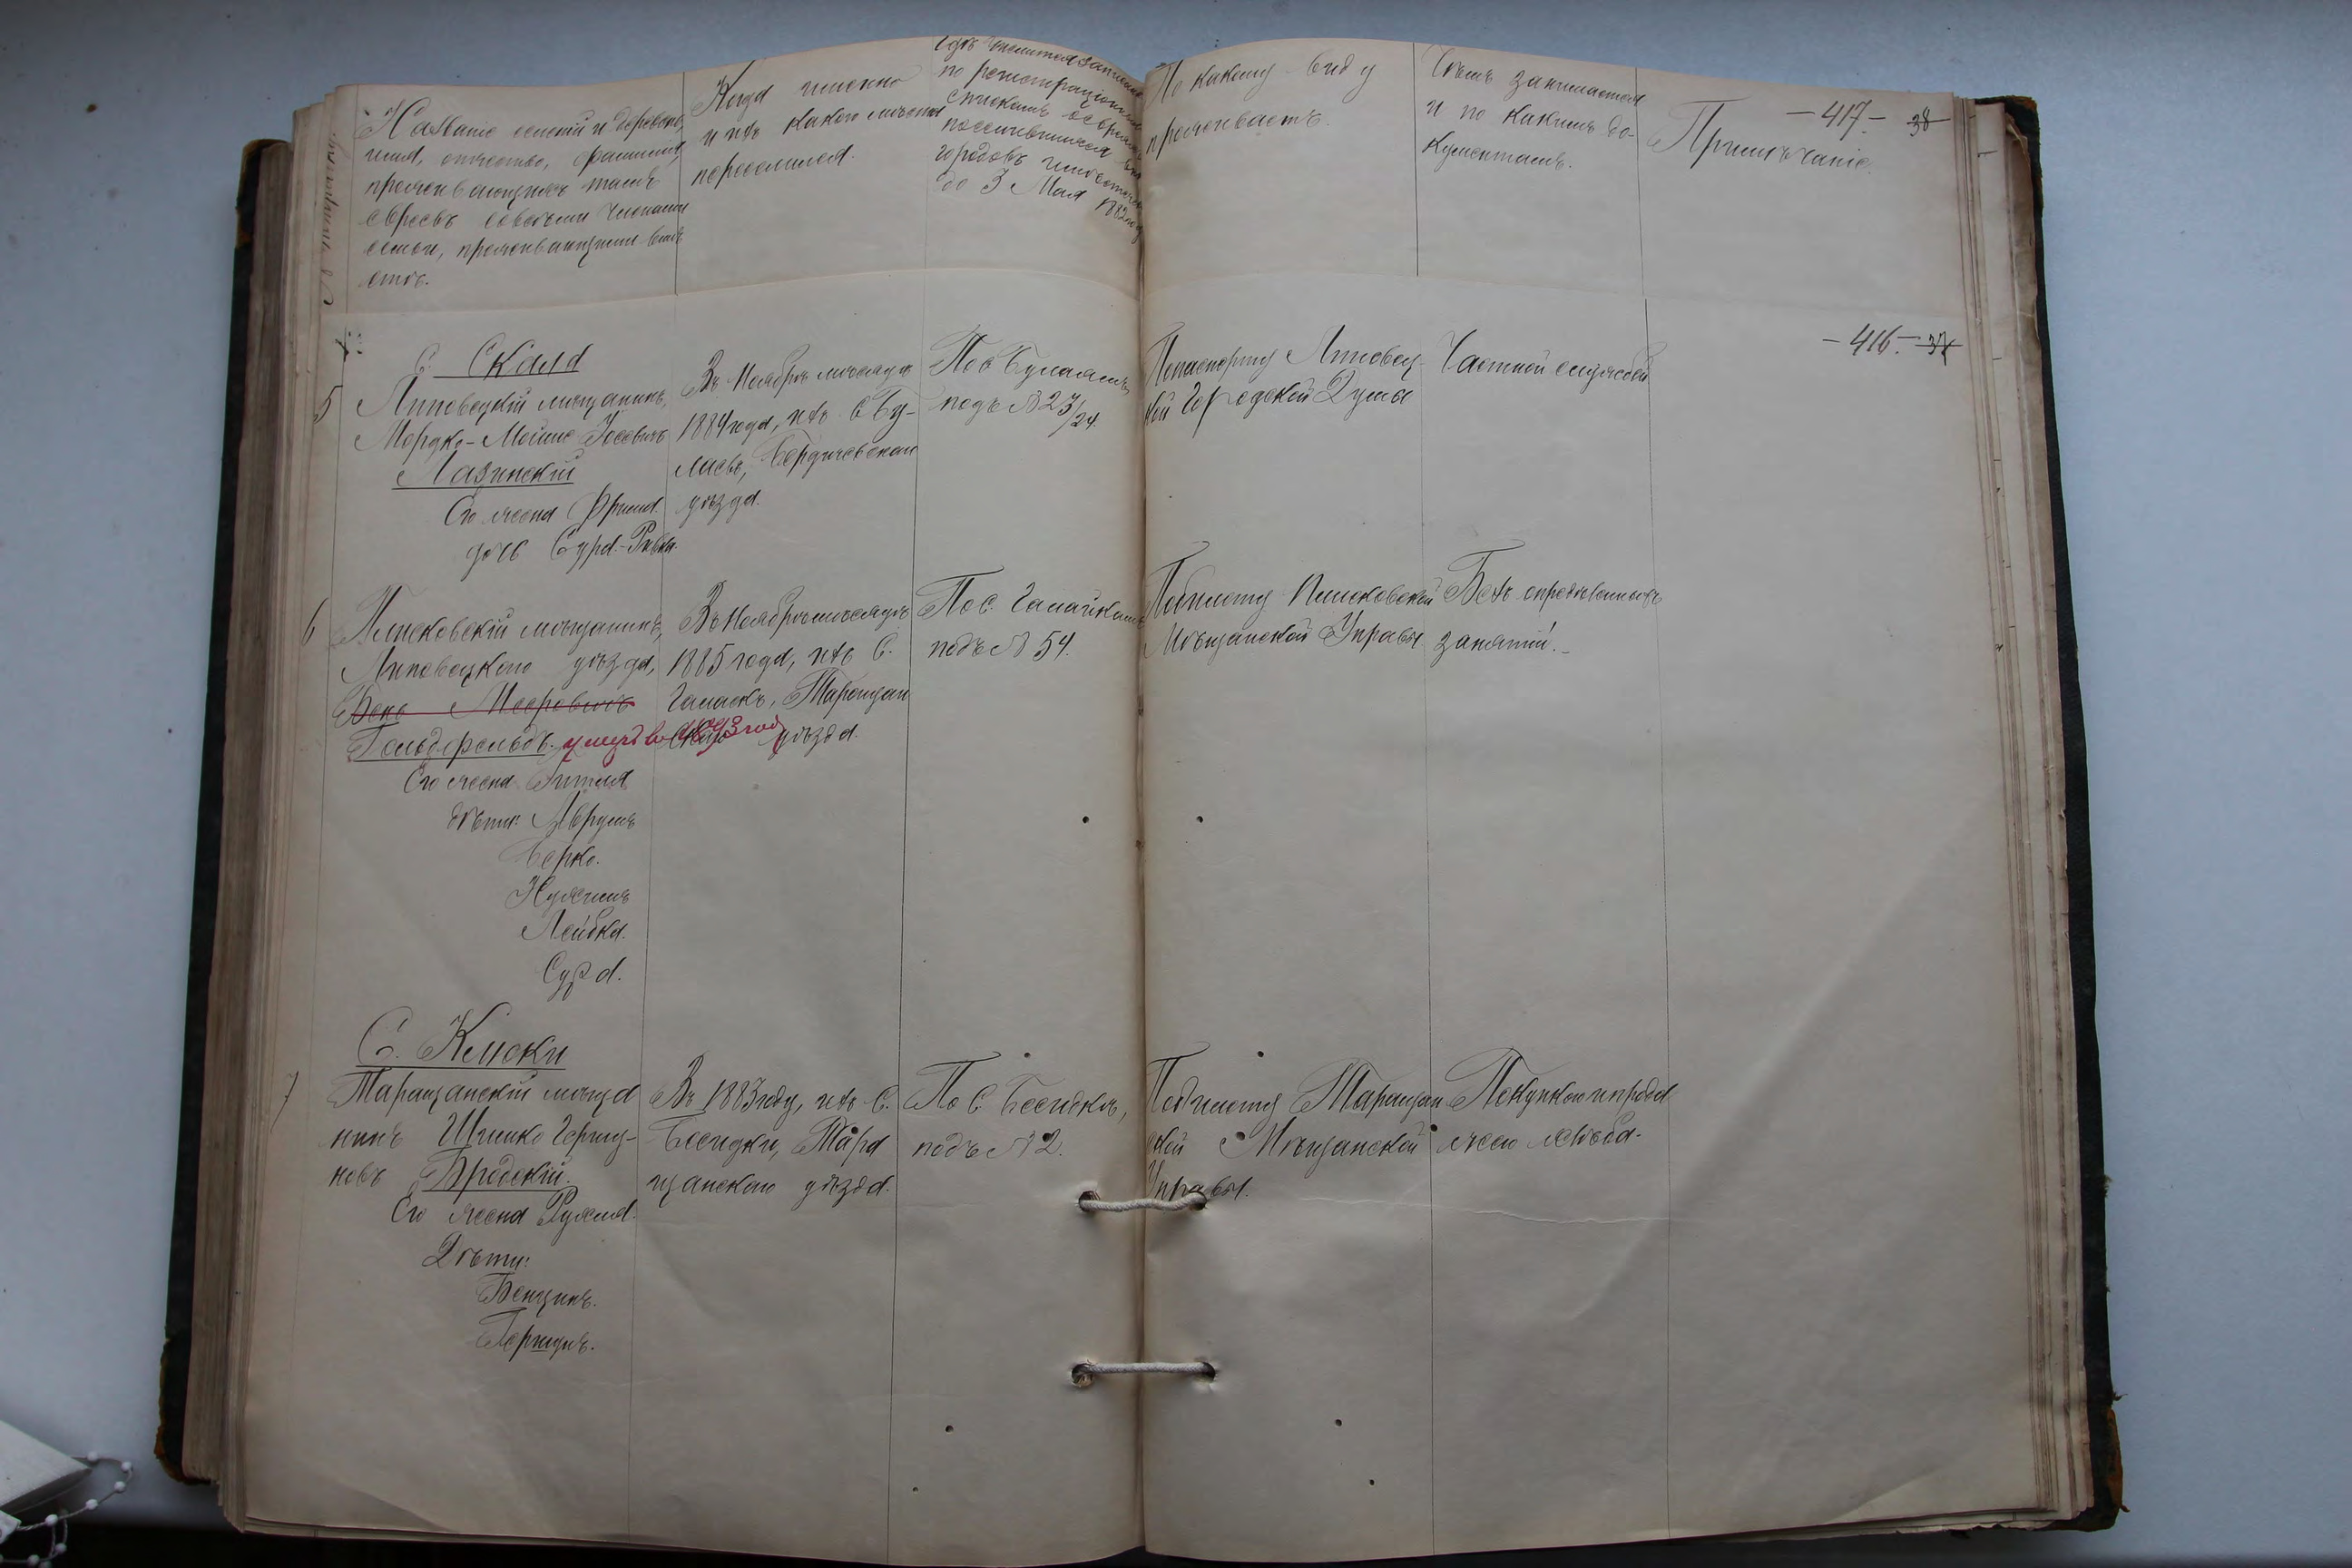 Названіе селеній и деревень,
имя, отчество, фамилія,
проживающихъ тамъ
евреевъ со всѣми членами
семьи, проживающими вмѣ-
стѣ.
Когда именно
и изъ какого мѣста
переселился.
Гдѣ числится записан
по регистраціоннымъ
спискамъ о евреяхъ
поселившихся внѣ
городовъ и мѣстечекъ
до 3 Мая 1882 года
По какому виду
проживаетъ.
Чѣмъ занимается
и по какимъ до-
кументамъ.
Примѣчаніе.
-417- 38
-416.- 37
С. Скала
5
Липовецкій мѣщанинъ,
Мордко-Мойше Іосевичъ
Лазинскій
Его жена Фрима.
дочь Сура-Ривка.
Въ Ноябрѣ мѣсяцѣ
1884 года, изъ с. Бу-
лаевъ, Бердичевскаго
уѣзда.
По с. Булаямъ,
подъ № 23/24.
По паспорту Липовец-
кой Городской Думы
Частной службой
6
Плисковскій мѣщанинъ,
Липовецкаго уѣзда,
Бень Мееровичъ
Гольдфельдъ. умеръ въ 1893 году
Его жена Гитля
дѣти: Аврумъ
Берко.
Нухимъ
Лейбка.
Сура.
Въ Ноябрѣ мѣсяцѣ
1885 года, изъ С.
Галаекъ, Таращан
скаго уѣзда.
По с. Галайкамъ
подъ № 54.
По билету Плисковской
Мѣщанской Управы
Безъ опредѣленныхъ
занятій.-
С. Клюки
7
Таращанскій мѣща
нинъ Шмико Гершу-
новъ Бродскій.
Его жена Рухля.
Дѣти:
Бенціонъ.
Гершунъ.
Въ 1883 году, изъ С.
Бесидки, Тара
щанскаго уѣзда.
По С. Бесидкѣ,
подъ № 2.
По билету Таращан
ской Мѣщанской
Управы.
Покупкою и прода
жею хлѣба.